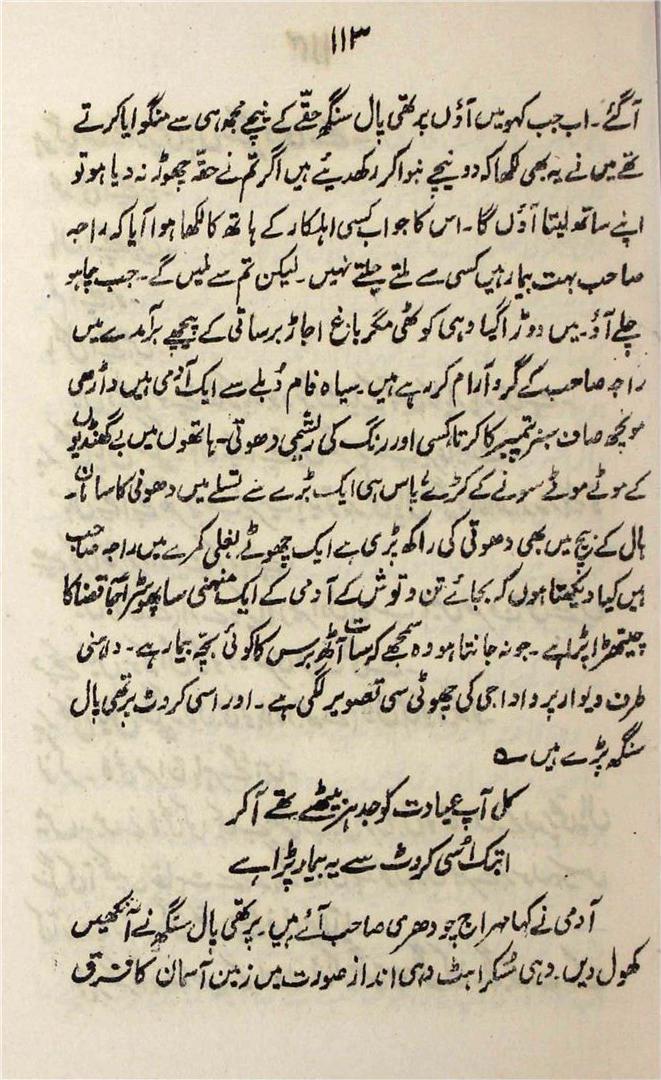 ۱۱۳
آگئے۔ اب جب کہو میں آؤں پرتھی پال سنگھ حقّے کے نیچے مجھ ہی سے منگوایا کرتے
تھے میں نے یہ بھی لکھا کہ دو نیچے بنوا کر رکھدیئے ہیں اگر تم نے حقّہ چھوڑ نہ دیا ہو تو
اپنے ساتھ لیتا آؤں گا۔ اس کا جواب کسی اہلکار کے ہاتھ کا لکھا ہوا آیا کہ راجہ
صاحب بہت بیمار ہیں کسی سے ملتے جلتے نہیں۔ لیکن تم سے ملیں گے۔ جب چاہو
چلے آؤ۔ میں دوڑا گیا وہی کوٹھی مگر باغ اجاڑ برساتی کے پیچھے برآمدے میں
راجہ صاحب کے گرو آرام کر رہے ہیں۔ سیاہ فام دُبلے سے ایک آدمی ہیں داڑھی
مونچھ صاف سبز کا کرتا کسی اور رنگ کی ریشمی دھوتی۔ ہاتھوں میں بے گھنڈیوں
کے موٹے موٹے سونے کے کڑے پاس ہی ایک بڑے سے تسلے میں دھونی کا سامان۔
ہال کے بیچ میں بھی دھوتی کی راکھ پڑی ہے ایک چھوٹے بغلی کمرے میں راجہ صاحب
ہیں کیا دیکھتا ہوں کہ بجائے تن و توش کے آدمی کے ایک منحنی سا
چیتھڑا پڑا ہے۔ جو نہ جانتا ہو وہ سمجھے کہ سات آٹھ برس کا کوئی بچّہ بیمار ہے۔ داہنی
طرف دیوار پر دادا جی کی چھوٹی سی تصویر لگی ہے۔ اور اسی کروٹ پرتھی پال
سنگھ پڑے ہیں ؎
کل آپ عیادت کو جدھر بیٹھے تھے آکر
ابتک اُسی کروٹ سے یہ بیمار پڑا ہے
آدمی نے کہا مہراج چودھری صاحب آئے ہیں۔ پرتھی پال سنگھ نے آنکھیں
کھول دیں۔ وہی مُسکراہٹ وہی انداز صورت میں زمین آسمان کا فرق